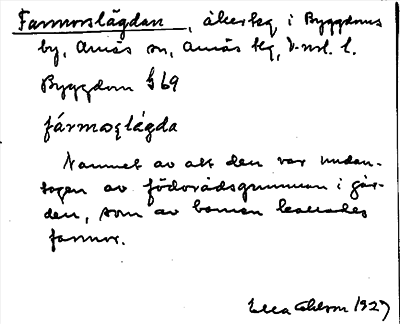 Farmorslägdan, åkerteg i Byggdoms
by, Arnäs sn, Arnäs tlg, V-nrl. l.
Byggdom § 69
fármoṣlágda
Namnet av att den var undan-
tagen av födorådsgumman i går-
den, som av barnen kallades
farmor.
Ella Ohlson 1927